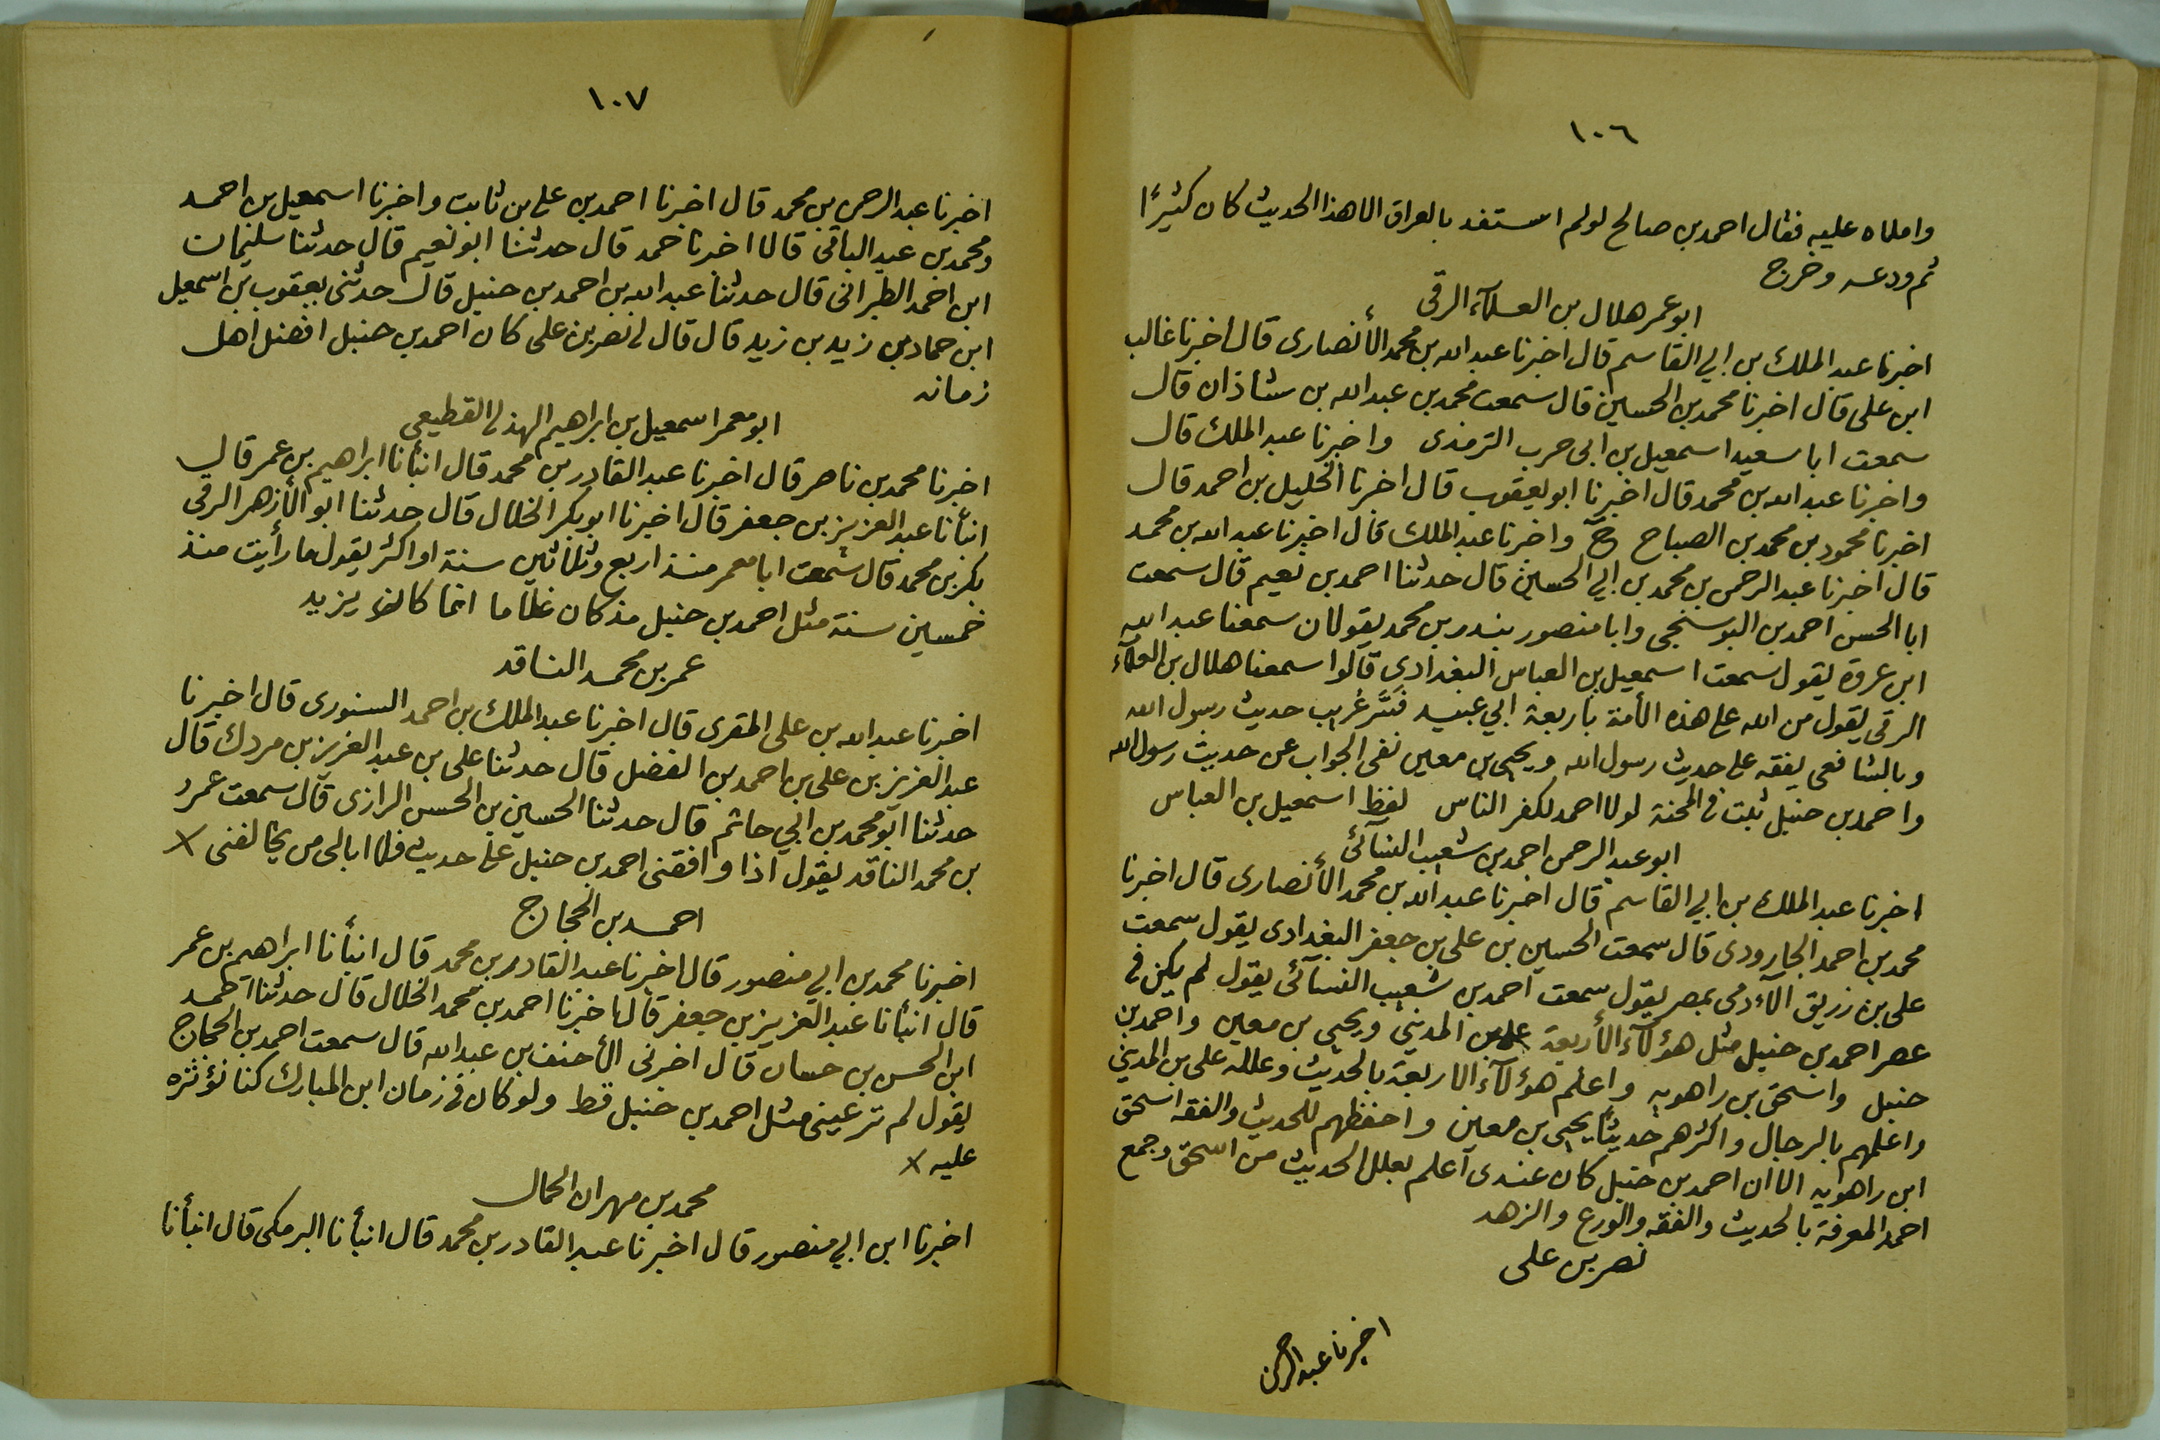 ١٠٦
واملاه عليه فقال احمد بن صالح لو لم استفد بالعراق الا هذا الحديث كان كثيرًا
ثم ودعه وخرج
ابو عمر هلال بن العلآء الرقى
اخبرنا عبد الملك بن ابي القاسم قال اخبرنا عبد الله بن محمد الأنصارى قال اخبرنا غالب
ابن على قال اخبرنا محمد بن الحسين قال سمعت محمد بن عبد الله بن شاذان قال
سمعت ابا سعيد اسمعيل بن ابى حرب الترمذى واخبرنا عبد الملك قال
واخبرنا عبد الله بن محمد قال اخبرنا ابو يعقوب قال اخبرنا الخليل بن احمد قال
اخبرنا محمود بن محمد بن الصباح ح واخرنا عبد الملك قال اخبرنا عبد الله بن محمد
قال اخبرنا عبد الرحمن بن محمد بن ابي الحسين قال حدثنا احمد بن نعيم قال سمعت
ابا الحسن احمد بن البوسنجى وابا منصور بندر بن محمد يقولان سمعنا عبد الله
ابن عروة يقول سمعت اسمعيل بن العباس البغدادى قالوا سمعنا هلال بن العلآء
الرقى يقول من الله على هذه الأمة بأربعة ابي عبيد فَسَّر غريب حديث رسول الله
وبالشافعى يفقه على حديث رسول الله ويحيى بن معين نفى الجواب عن حديث رسول الله
واحمد بن حنبل ثبت فى المحنة لولا احمد لكفر الناس لفظ اسمعيل بن العباس
ابو عبد الرحمن احمد بن شعيب النسآئى
اخبرنا عبد الملك بن ابي القاسم قال اخبرنا عبد الله بن محمد الأنصارى قال اخبرنا
محمد بن احمد الجارودى قال سمعت الحسين بن على بن جعفر البغدادى يقول سمعت
على بن زريق الآدمى بمصر يقول سمعت احمد بن شعيب النسآئى يقول لم يكن فى
عصر احمد بن حنبل مثل هؤلآء الأربعة على بن المدينى ويحيى بن معين واحمد بن
حنبل واسحق بن راهويه واعلم هؤلآء الاربعة بالحديث وعلله على بن المدينى
واعلمهم بالرجال واكثرهم حديثًا يحيى بن معين واحفظهم للحديث والفقه اسحق
ابن راهويه الا ان احمد بن حنبل كان عندى اعلم بعلل الحديث من اسحق وجمع
احمد المعرفة بالحديث والفقه والورع والزهد
نصر بن على
اخبرنا عبد الرحمن
١٠٧
اخبرنا عبد الرحمن بن محمد قال اخبرنا احمد بن على بن ثابت واخبرنا اسمعيل بن احمد
ومحمد بن عبد الباقى قالا اخبرنا حمد قال حدثنا ابو نعيم قال حدثنا سليمان
ابن احمد الطبرانى قال حدثنا عبد الله بن احمد بن حنبل قال حدثنى يعقوب بن اسمعيل
ابن حماد بن زيد بن زيد قال قال لى نصر بن على كان احمد بن حنبل افضل اهل
زمانه
ابو معمر اسمعيل بن ابراهيم الهذلى القطيعى
اخبرنا محمد بن ناصر قال اخبرنا عبد القادر بن محمد قال انبأنا ابراهيم بن عمر قال
انبأنا عبد العزيز بن جعفر قال اخبرنا ابو بكر الخلال قال حدثنا ابو الأزهر الرقى
بكر بن محمد قال سمعت ابا معمر منذ اربع وثلاثين سنة او اكثر يقول ما رأيت منذ
خمسين سنة مثل احمد بن حنبل مذ كان غلاما انما كانو يزيد
عمر بن محمد الناقد
اخبرنا عبد الله بن على المقرى قال اخبرنا عبد الملك بن احمد السنورى قال اخبرنا
عبد العزيز بن على بن احمد بن الفضل قال حدثنا على بن عبد العزيز بن مردك قال
حدثنا ابو محمد بن ابي حاتم قال حدثنا الحسين بن الحسن الرازى قال سمعت عمرو
بن محمد الناقد يقول اذا وافقنى احمد بن حنبل على حديث فلا ابالى من يخالفنى ×
احمد بن الحجاج
اخبرنا محمد بن ابي منصور قال اخبرنا عبد القادر بن محمد قال انبأنا ابراهيم بن عمر
قال انبأنا عبد العزيز بن جعفر قال اخبرنا احمد بن محمد الخلال قال حدثنا احمد
ابن الحسن بن حسان قال اخبرنى الأحنف بن عبد الله قال سمعت احمد بن الحجاج
يقول لم تر عينى مثل احمد بن حنبل قط ولو كان فى زمان ابن المبارك كنا نؤثره
عليه ×
محمد بن مهران الحمال
اخبرنا ابن ابي منصور قال اخبرنا عبد القادر بن محمد قال انبأنا البرمكى قال انبأنا